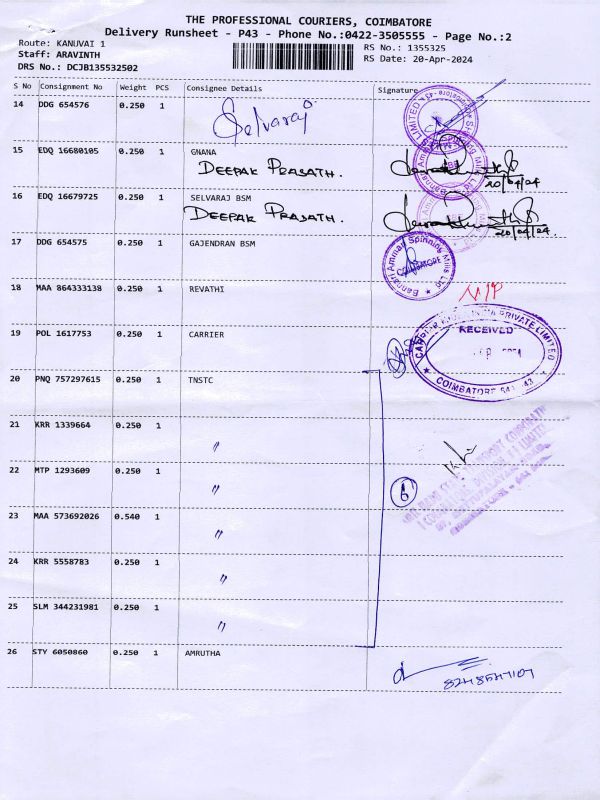 THE PROFESSIONAL COURIERS, COIMBATORE
Delivery Runsheet - P43 - Phone No.:0422-3505555 - Page No.:2
Route: KANUVAI 1
Staff: ARAVINTH
DRS No.: DCJB135532502
RS No.: 1355325
RS Date: 20-Apr-2024
S No Consignment No Weight PCS Consignee Details Signature
14 DDG 654576 0.250 1
Selvaraj
15 EDQ 16680105 0.250 1 GNANA
DEEPAK PRASATH.
20/04/24
16 EDQ 16679725 0.250 1 SELVARAJ BSM
DEEPAK PRASATH.
20/04/24
17 DDG 654575 0.250 1 GAJENDRAN BSM
Bannari Amman Spinning Mills Ltd
COIMBATORE
18 MAA 864333138 0.250 1 REVATHI
19 POL 1617753 0.250 1 CARRIER
PRIVATE LIMITED
RECEIVED
COIMBATORE
20 PNQ 757297615 0.250 1 TNSTC
21 KRR 1339664 0.250 1
"
22 MTP 1293609 0.250 1
"
6
23 MAA 573692026 0.540 1
"
24 KRR 5558783 0.250 1
"
25 SLM 344231981 0.250 1
"
26 STY 6050860 0.250 1 AMRUTHA